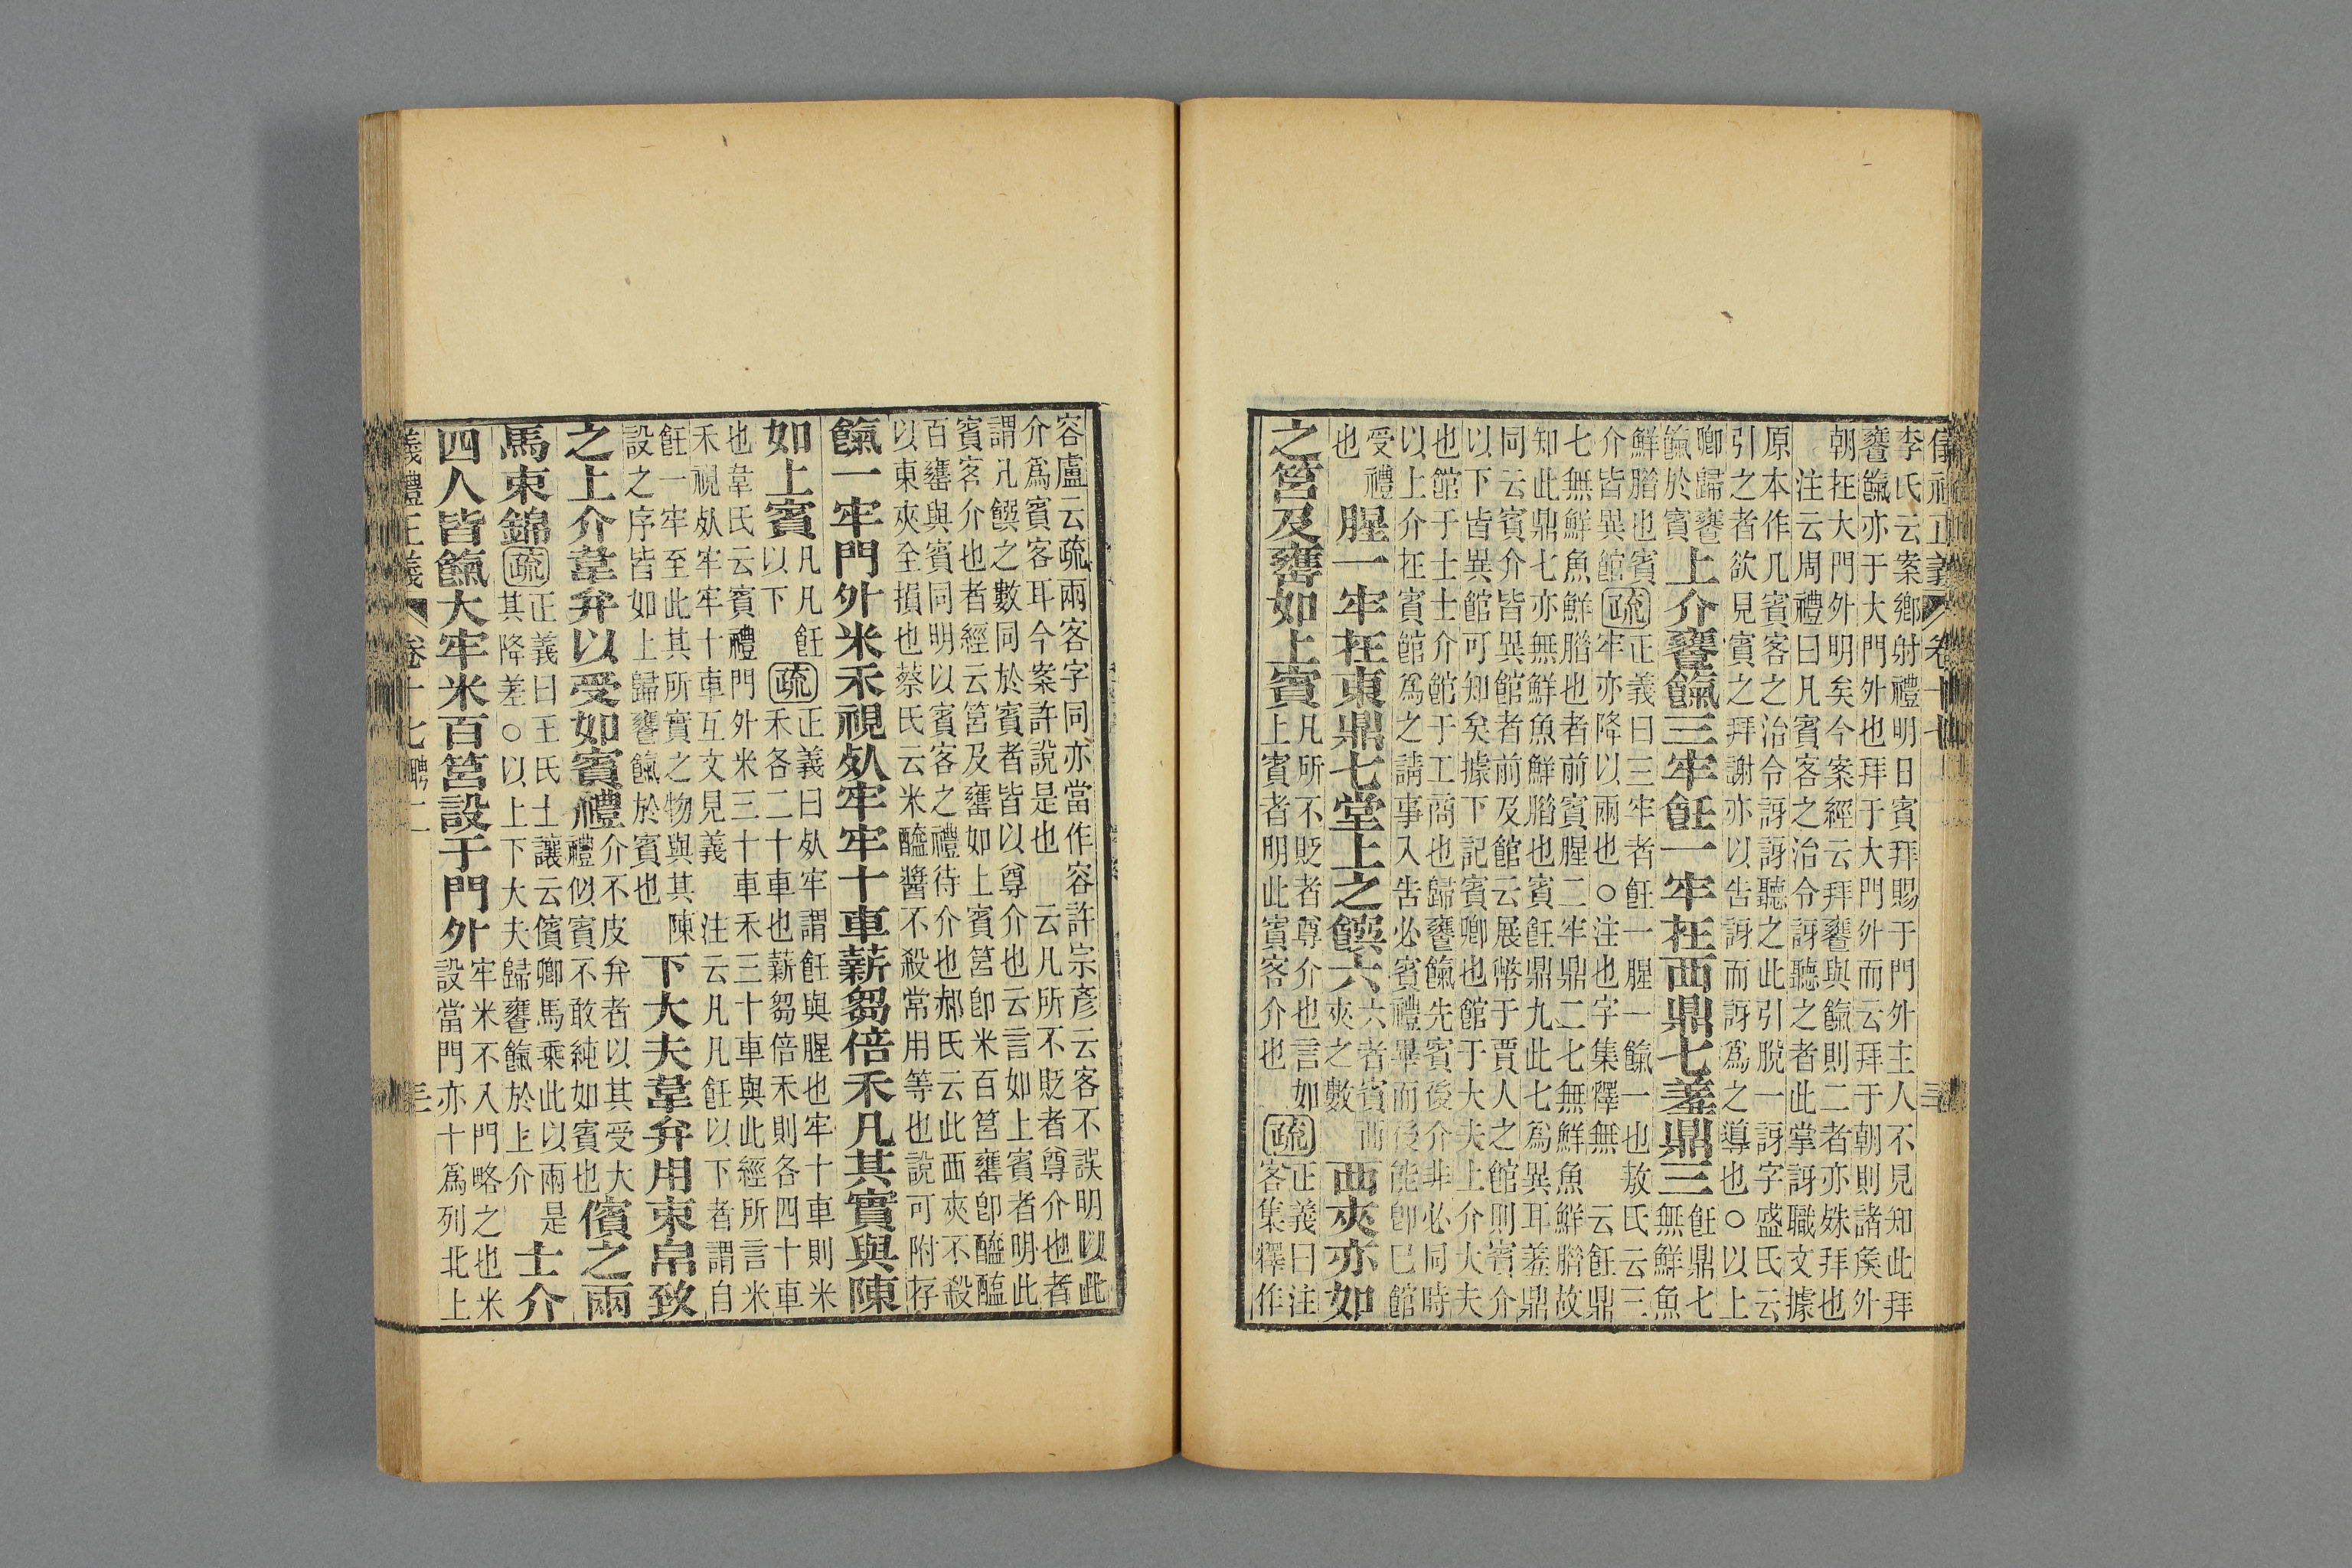 儀禮正義 卷十七 三
李氏云案鄉射禮明日賓拜賜于門外主人不見知此拜
饔餼亦于大門外也拜于大門外而云拜于朝則諸矦外
朝在大門外明矣今案經云拜饔與餼則二者亦姝拜也
注云周禮曰凡賓客之治令訝聽之者此掌訝職文據
原本作凡賓客之治令訝訝聽之此引脫一訝字盛氏云
引之者欲見賓之拜謝亦以告訝而訝爲之導也○以上
卿歸饔
餼於賓
上介饔餼三牢飪一牢在西鼎七羞鼎三
飪鼎七
無鮮魚
鮮腊也賓
介皆異館
疏
正義曰三牢者飪一腥一餼一也敖氏云三
牢亦降以兩也○注也字集釋無 云飪鼎
七無鮮魚鮮腊也者前賓腥二牢鼎二七無鮮魚鮮腊故
知此鼎七亦無鮮魚鮮腊也賓飪鼎九此七爲異耳羞鼎
同云賓介皆異館者前及館云展幣于賈人之館則賓介
以下皆異館可知矣據下記賓卿也館于大夫上介大夫
也館于士士介館于工商也歸饔餼先賓後介非必同時
以上介在賓館爲之請事入告必賓禮畢而後能卽已館
受禮
也
腥一牢在東鼎七堂上之饌六
六者賓西
夾之數
西夾亦如
之筥及罋如上賓
凡所不貶者尊介也言如
上賓者明此賓客介也
疏
正義曰注
客集釋作
容盧云疏兩客字同亦當作容許宗彥云客不誤明以此
介爲賓客耳今案許說是也 云凡所不貶者尊介也者
謂凡饌之數同於賓者皆以尊介也云言如上賓者明此
賓客介也者經云筥及罋如上賓筥卽米百筥罋卽醯醢
百罋與賓同明以賓客之禮待介也郝氏云此西夾不殺
以東夾全損也蔡氏云米醯醬不殺常用等也說可附存
餼一牢門外米禾視死牢牢十車薪芻倍禾凡其實與陳
如上賓
凡凡飪
以下
疏
正義曰死牢謂飪與腥也牢十車則米
禾各二十車也薪芻倍禾則各四十車
也韋氏云賓禮門外米三十車禾三十車與此經所言米
禾視死牢牢十車互文見義 注云凡凡飪以下者謂自
飪一牢至此其所實之物與其陳
設之序皆如上歸饔餼於賓也
下大夫韋弁用束帛致
之上介韋弁以受如賓禮
介不皮弁者以其受大
禮似賓不敢純如賓也
儐之兩
馬束錦
疏
正義曰王氏士讓云儐卿馬乘此以兩是
其降差○以上下大夫歸饔餼於上介
士介
四人皆餼大牢米百筥設于門外
牢米不入門略之也米
設當門亦十爲列北上
義禮正義 卷十七聘二 三